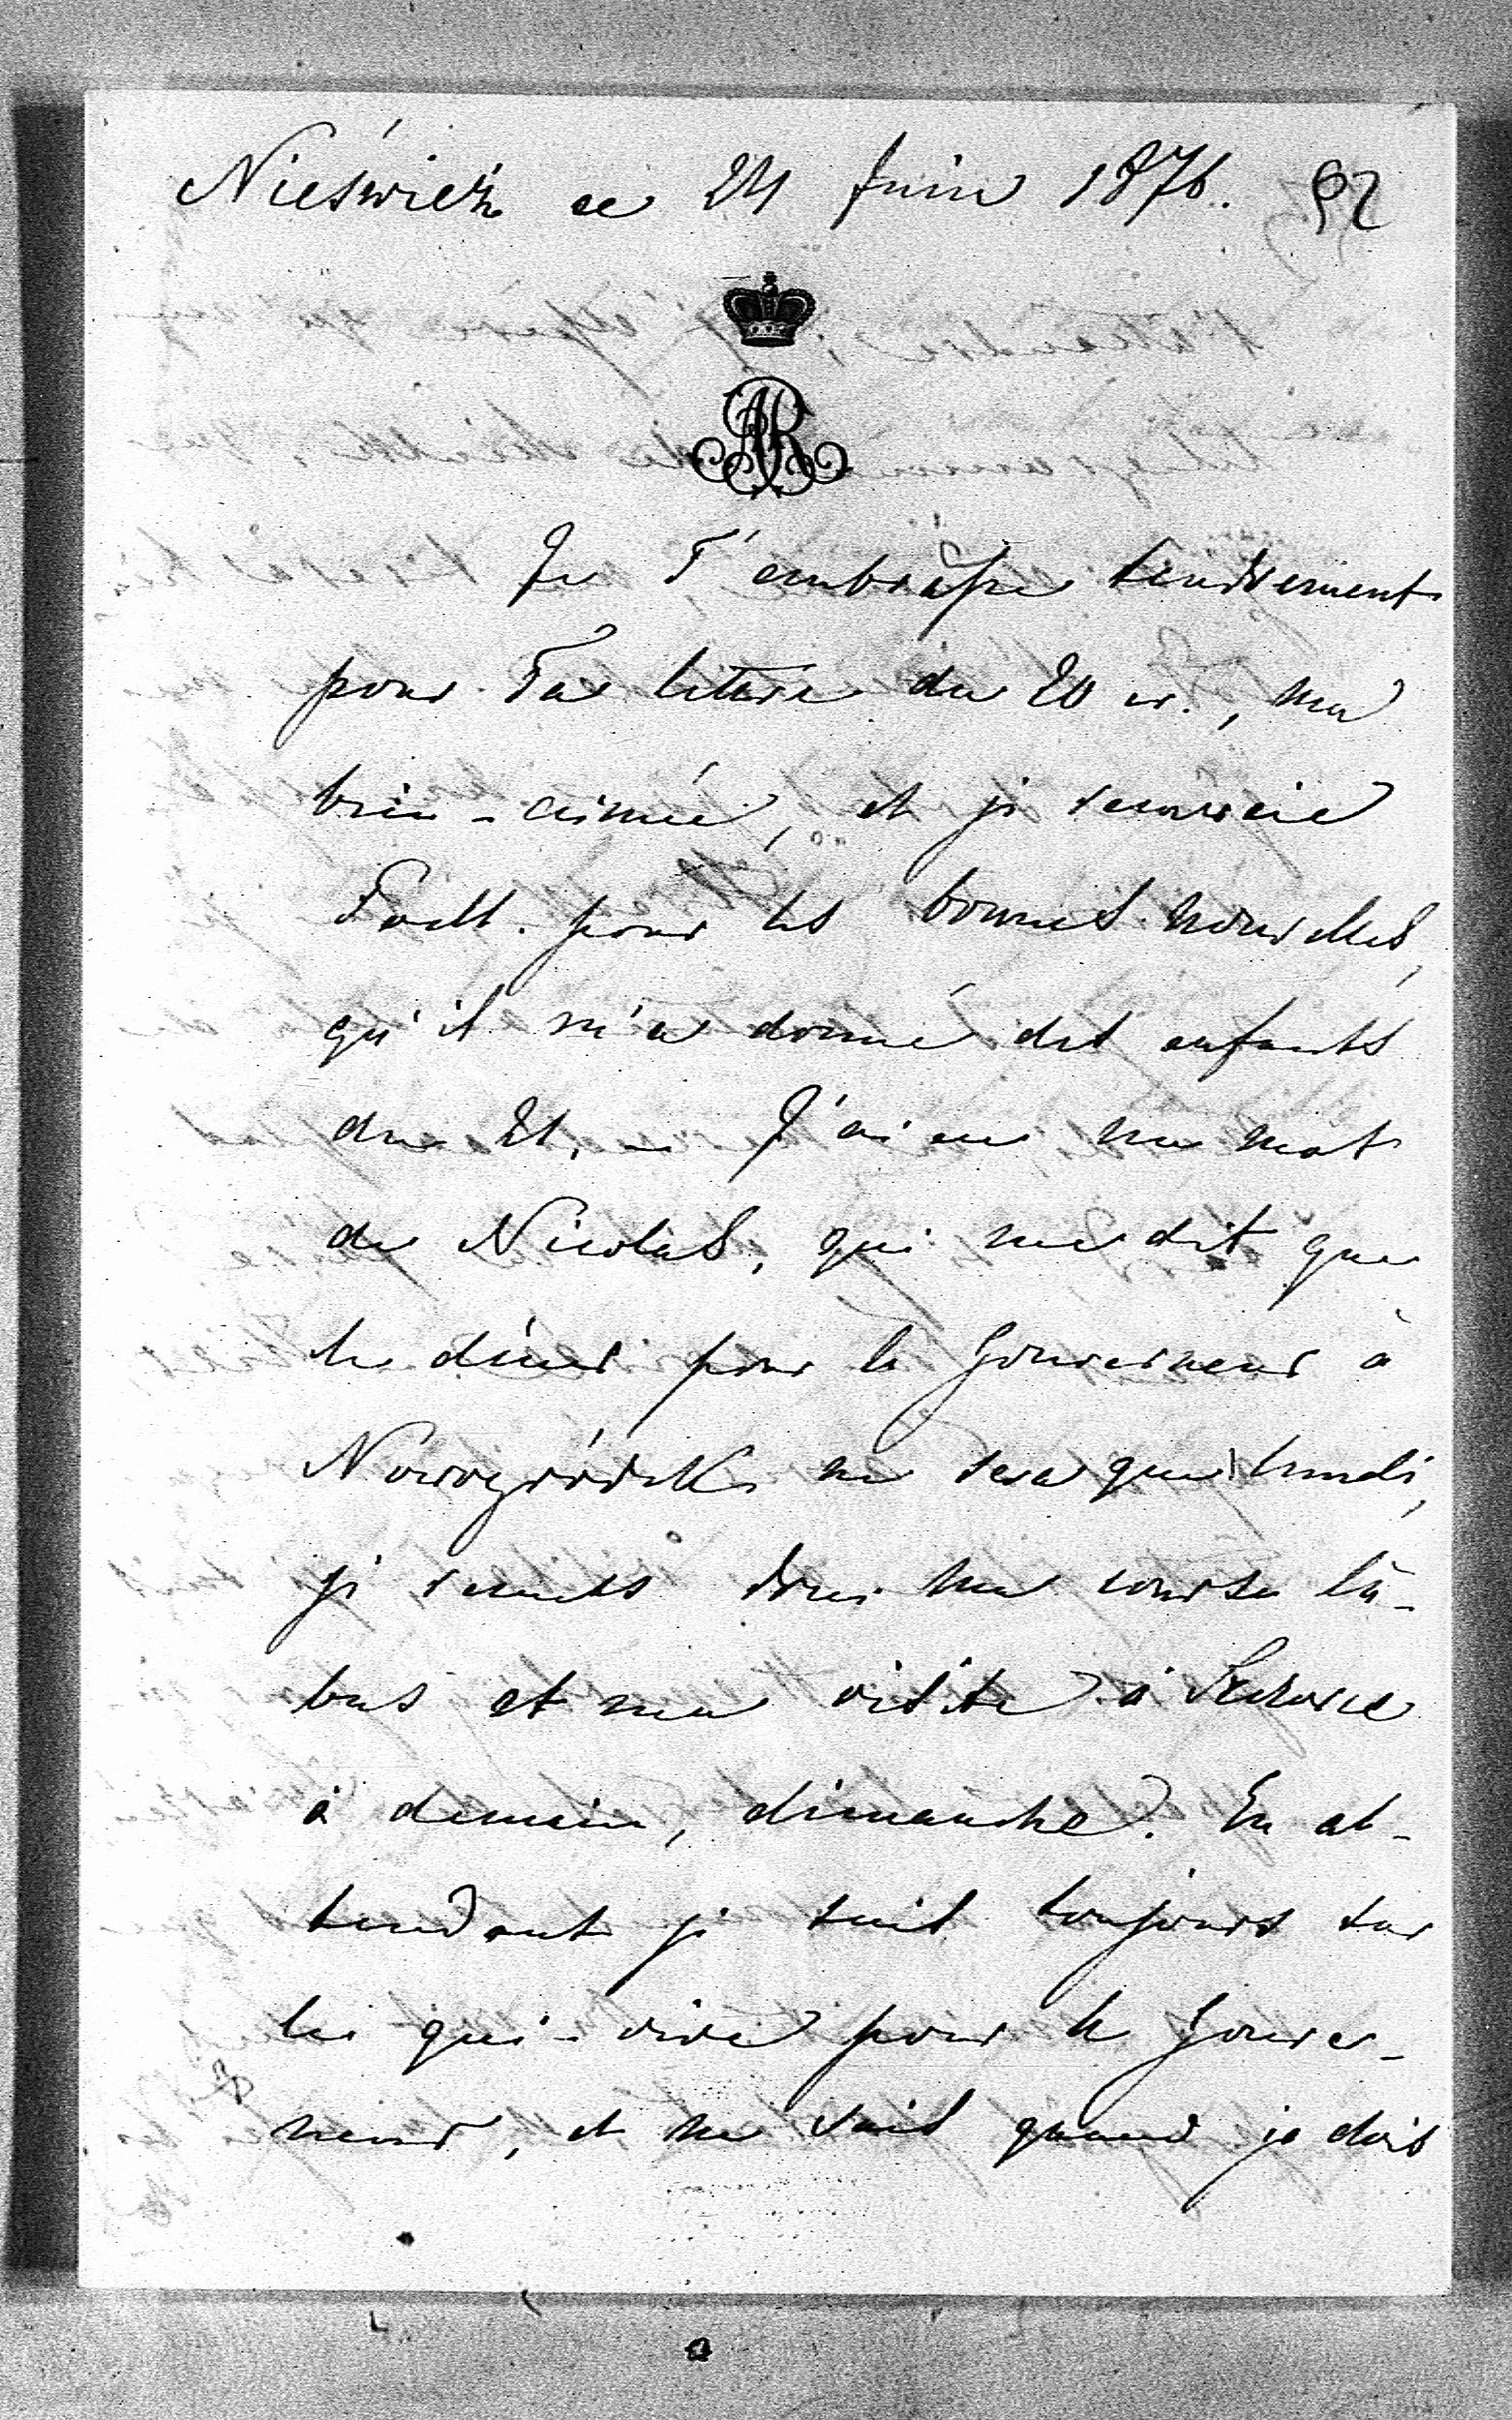 Nieśwież ce 24 Juin 1876. 92
AR
Je T'embrasse tendrement
pour Ta lettre du 20 cr., ma
bien-aimée, et je remercie
pour les bonnes nouvelles,
qu'il m'a donné des enfants
du 21. – J'ai eu un mot
de Nicolas, qui me dit que
le dîner pour le Gouverneur à
Nowogródek ne sera que lundi,
je remets donc ma course là-
bas et ma visite à
à demain, dimanche. En at-
tendant je suis toujours sur
le qui-vive pour le Gouver-
neur, et ne sais quand je dois